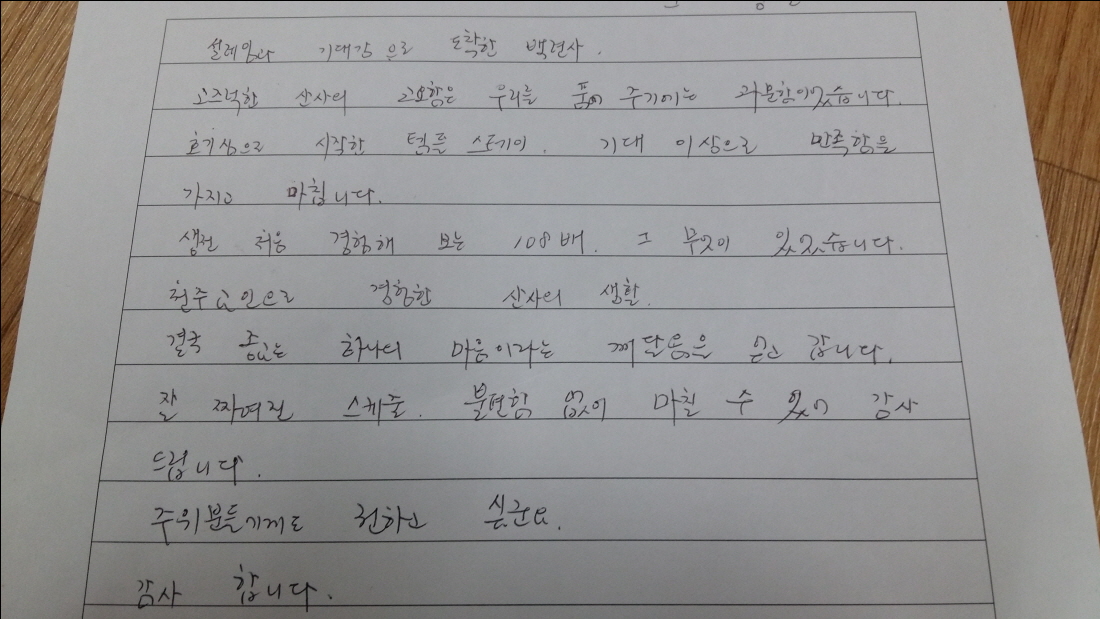 설레임과 기대감으로 도착한 백련사.
고즈넉한 산사의 고요함은 우리를 품어 주기에는 과분함이있습니다.
호기심으로 시작한 템플스테이. 기대 이상으로 만족함을
가지고 마칩니다.
생전 처음 경험해 보는 108배. 그 무엇이 있었습니다.
천주교인으로 경험한 산사의 생활.
결국 종교는 하나의 마음이라는 깨달음을 얻고 갑니다.
잘 짜여진 스케줄. 불편함 없이 마칠 수 있어 감사
드립니다.
주위분들에게도 권하고 싶군요.
감사 합니다.